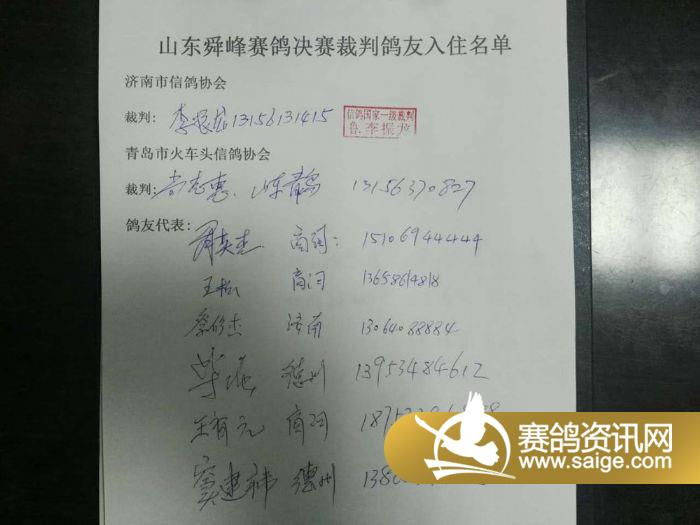 山东舜峰赛鸽决赛裁判鸽友入住名单
济南市信鸽协会
裁判: 李振龙 13156131415
信鸽国家一级裁判
鲁 李振龙
青岛市火车头信鸽协会
裁判: 尚志惠、陈青岛 13156370827
鸽友代表:
英杰 商河: 15106944444
王松 商河 13658614818
蔡 杰 济南 13064088884
德州 13953484612
王有元 商河
窦建 德州
赛鸽资讯网
www.saige.com